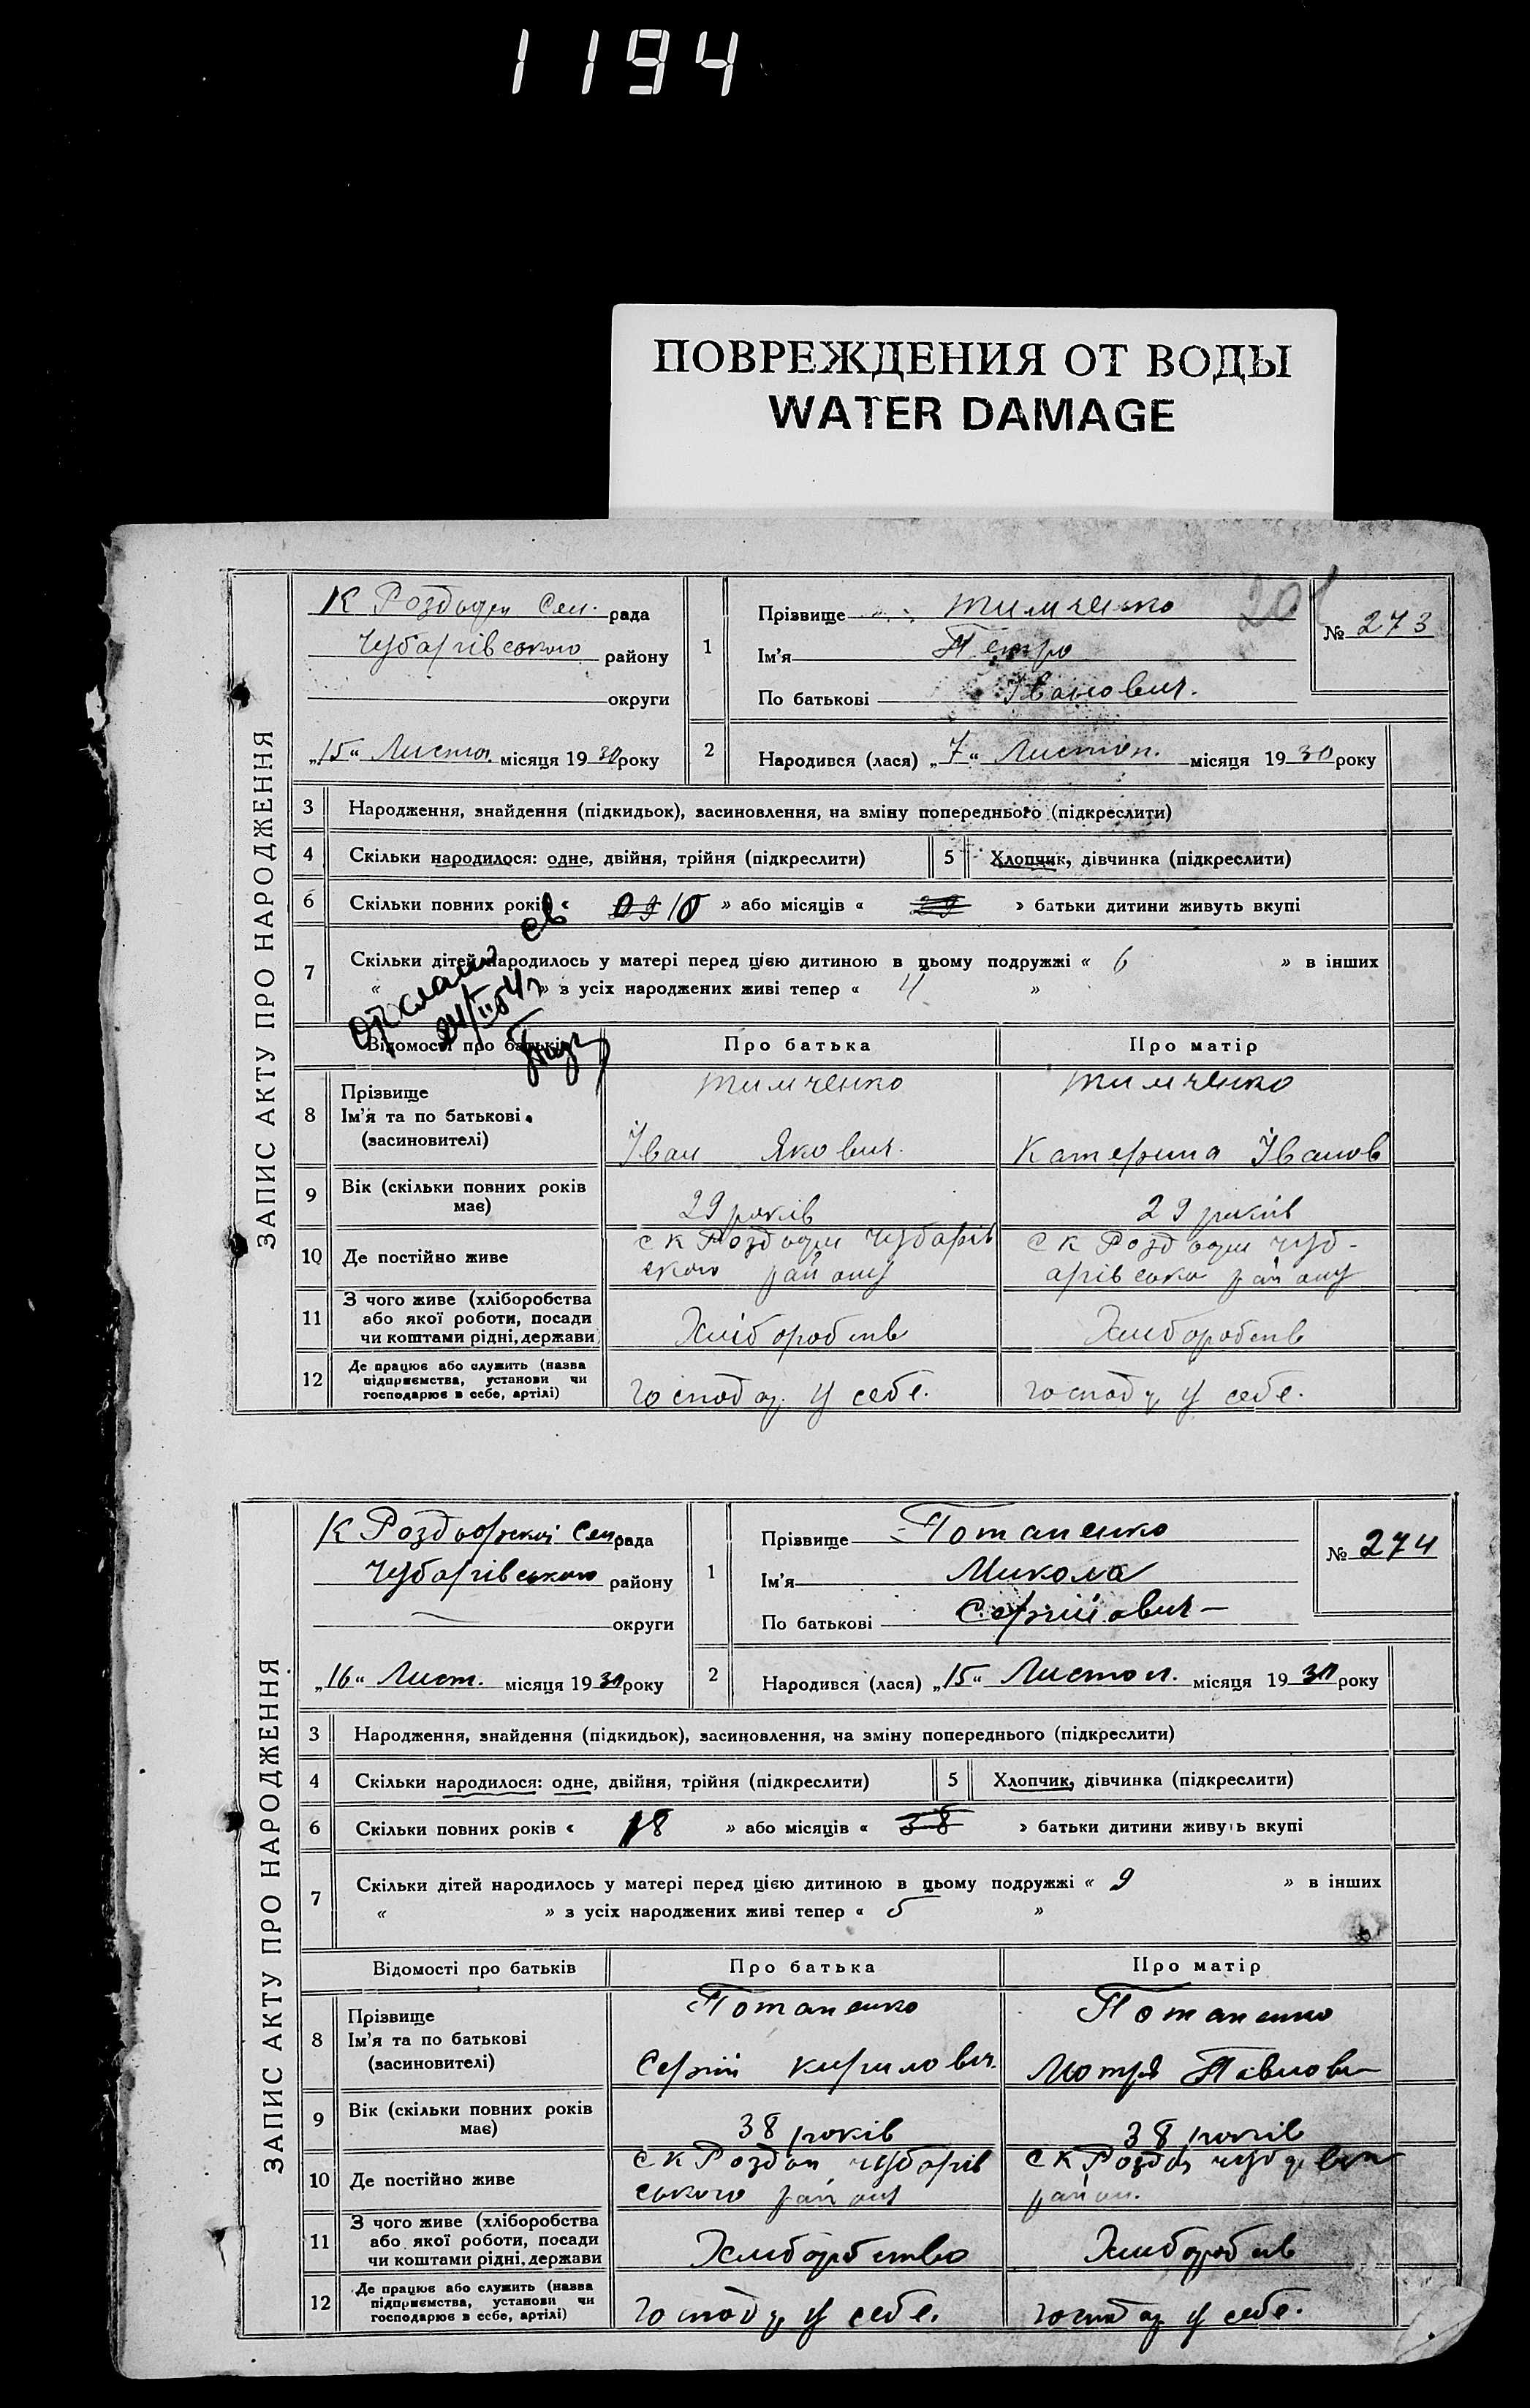 1194
ПОВРЕЖДЕНИЯ ОТ ВОДЫ
WATER DAMAGE
ЗАПИС АКТУ ПРО НАРОДЖЕННЯ
К Роздори Сел. рада
Чубарівського району
округи
„15“ Листоп. місяця 1930 року
1
Прізвище Тимченко
Ім'я Петро
По батькові Іванович.
201
№ 273
2
Народився (лася) „7“ Листоп. місяця 1930 року
3 Народження, знайдення (підкидьок), засиновлення, на зміну попереднього (підкреслити)
4 Скільки народилося: одне, двійня, трійня (підкреслити)
5 Хлопчик, дівчинка (підкреслити)
6 Скільки повних років « 10 » або місяців « 29 » батьки дитини живуть вкупі
7 Скільки дітей народилось у матері перед цією дитиною в цьому подружжі « 6 » в інших
« » з усіх народжених живі тепер « 4 »
Відомості про батьків
Про батька
Про матір
8 Прізвище
Ім'я та по батькові
(засиновителі)
Тимченко
Іван Якович.
Тимченко
Катерина Іванов
9 Вік (скільки повних років має)
29 років
29 років
10 Де постійно живе
с К Роздори Чубарів
ского району
с К Роздори Чуб-
арівсько району
11 З чого живе (хліборобства
або якої роботи, посади
чи коштами рідні, держави)
Хліборобств
Хліборобств
12 Де працює або служить (назва
підприємства, установи чи
господарює в себе, артілі)
господар у себе.
господ у себе.
ЗАПИС АКТУ ПРО НАРОДЖЕННЯ
К Роздорській Сел рада
Чубарівського району
округи
„16“ Лист. місяця 1930 року
1
Прізвище Потапенко
Ім'я Микола
По батькові Сергійович
№ 274
2
Народився (лася) „15“ Листоп. місяця 1930 року
3 Народження, знайдення (підкидьок), засиновлення, на зміну попереднього (підкреслити)
4 Скільки народилося: одне, двійня, трійня (підкреслити)
5 Хлопчик, дівчинка (підкреслити)
6 Скільки повних років « 18 » або місяців « 38 » батьки дитини живуть вкупі
7 Скільки дітей народилось у матері перед цією дитиною в цьому подружжі « 9 » в інших
« » з усіх народжених живі тепер « 5 »
Відомості про батьків
Про батька
Про матір
8 Прізвище
Ім'я та по батькові
(засиновителі)
Потапенко
Сергій Кирилович.
Потапенко
Мотря Павлов
9 Вік (скільки повних років має)
38 років
38 років
10 Де постійно живе
с К Роздори Чубарів
ського району
с К Роздор
район.
11 З чого живе (хліборобства
або якої роботи, посади
чи коштами рідні, держави
Хліборобство
Хліборобств
12 Де працює або служить (назва
підприємства, установи чи
господарює в себе, артілі)
господ у себе.
господар у себе.